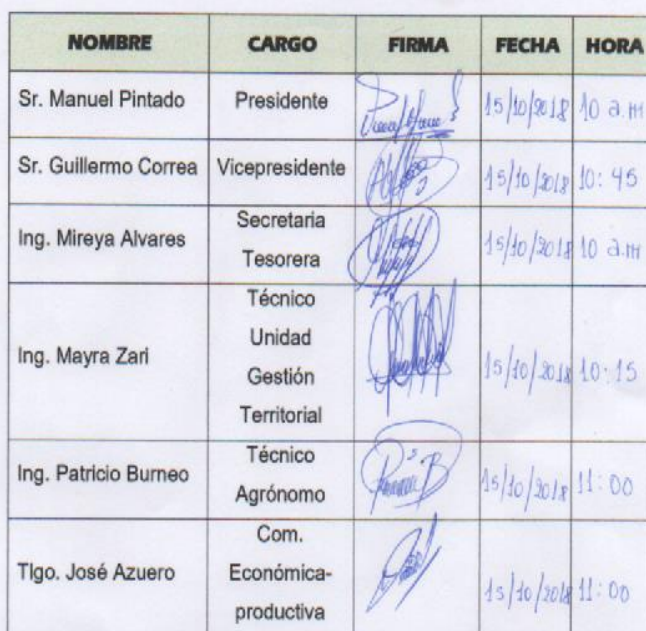 NOMBRE CARGO FIRMA FECHA HORA
Sr. Manuel Pintado Presidente 15/10/2018 10 a.m
Sr. Guillermo Correa Vicepresidente 15/10/2018 10:45
Ing. Mireya Alvares Secretaria Tesorera 15/10/2018 10 a.m
Ing. Mayra Zari Técnico Unidad Gestión Territorial 15/10/2018 10:15
Ing. Patricio Burneo Técnico Agrónomo 15/10/2018 11:00
Tlgo. José Azuero Com. Económica-productiva 15/10/2018 11:00